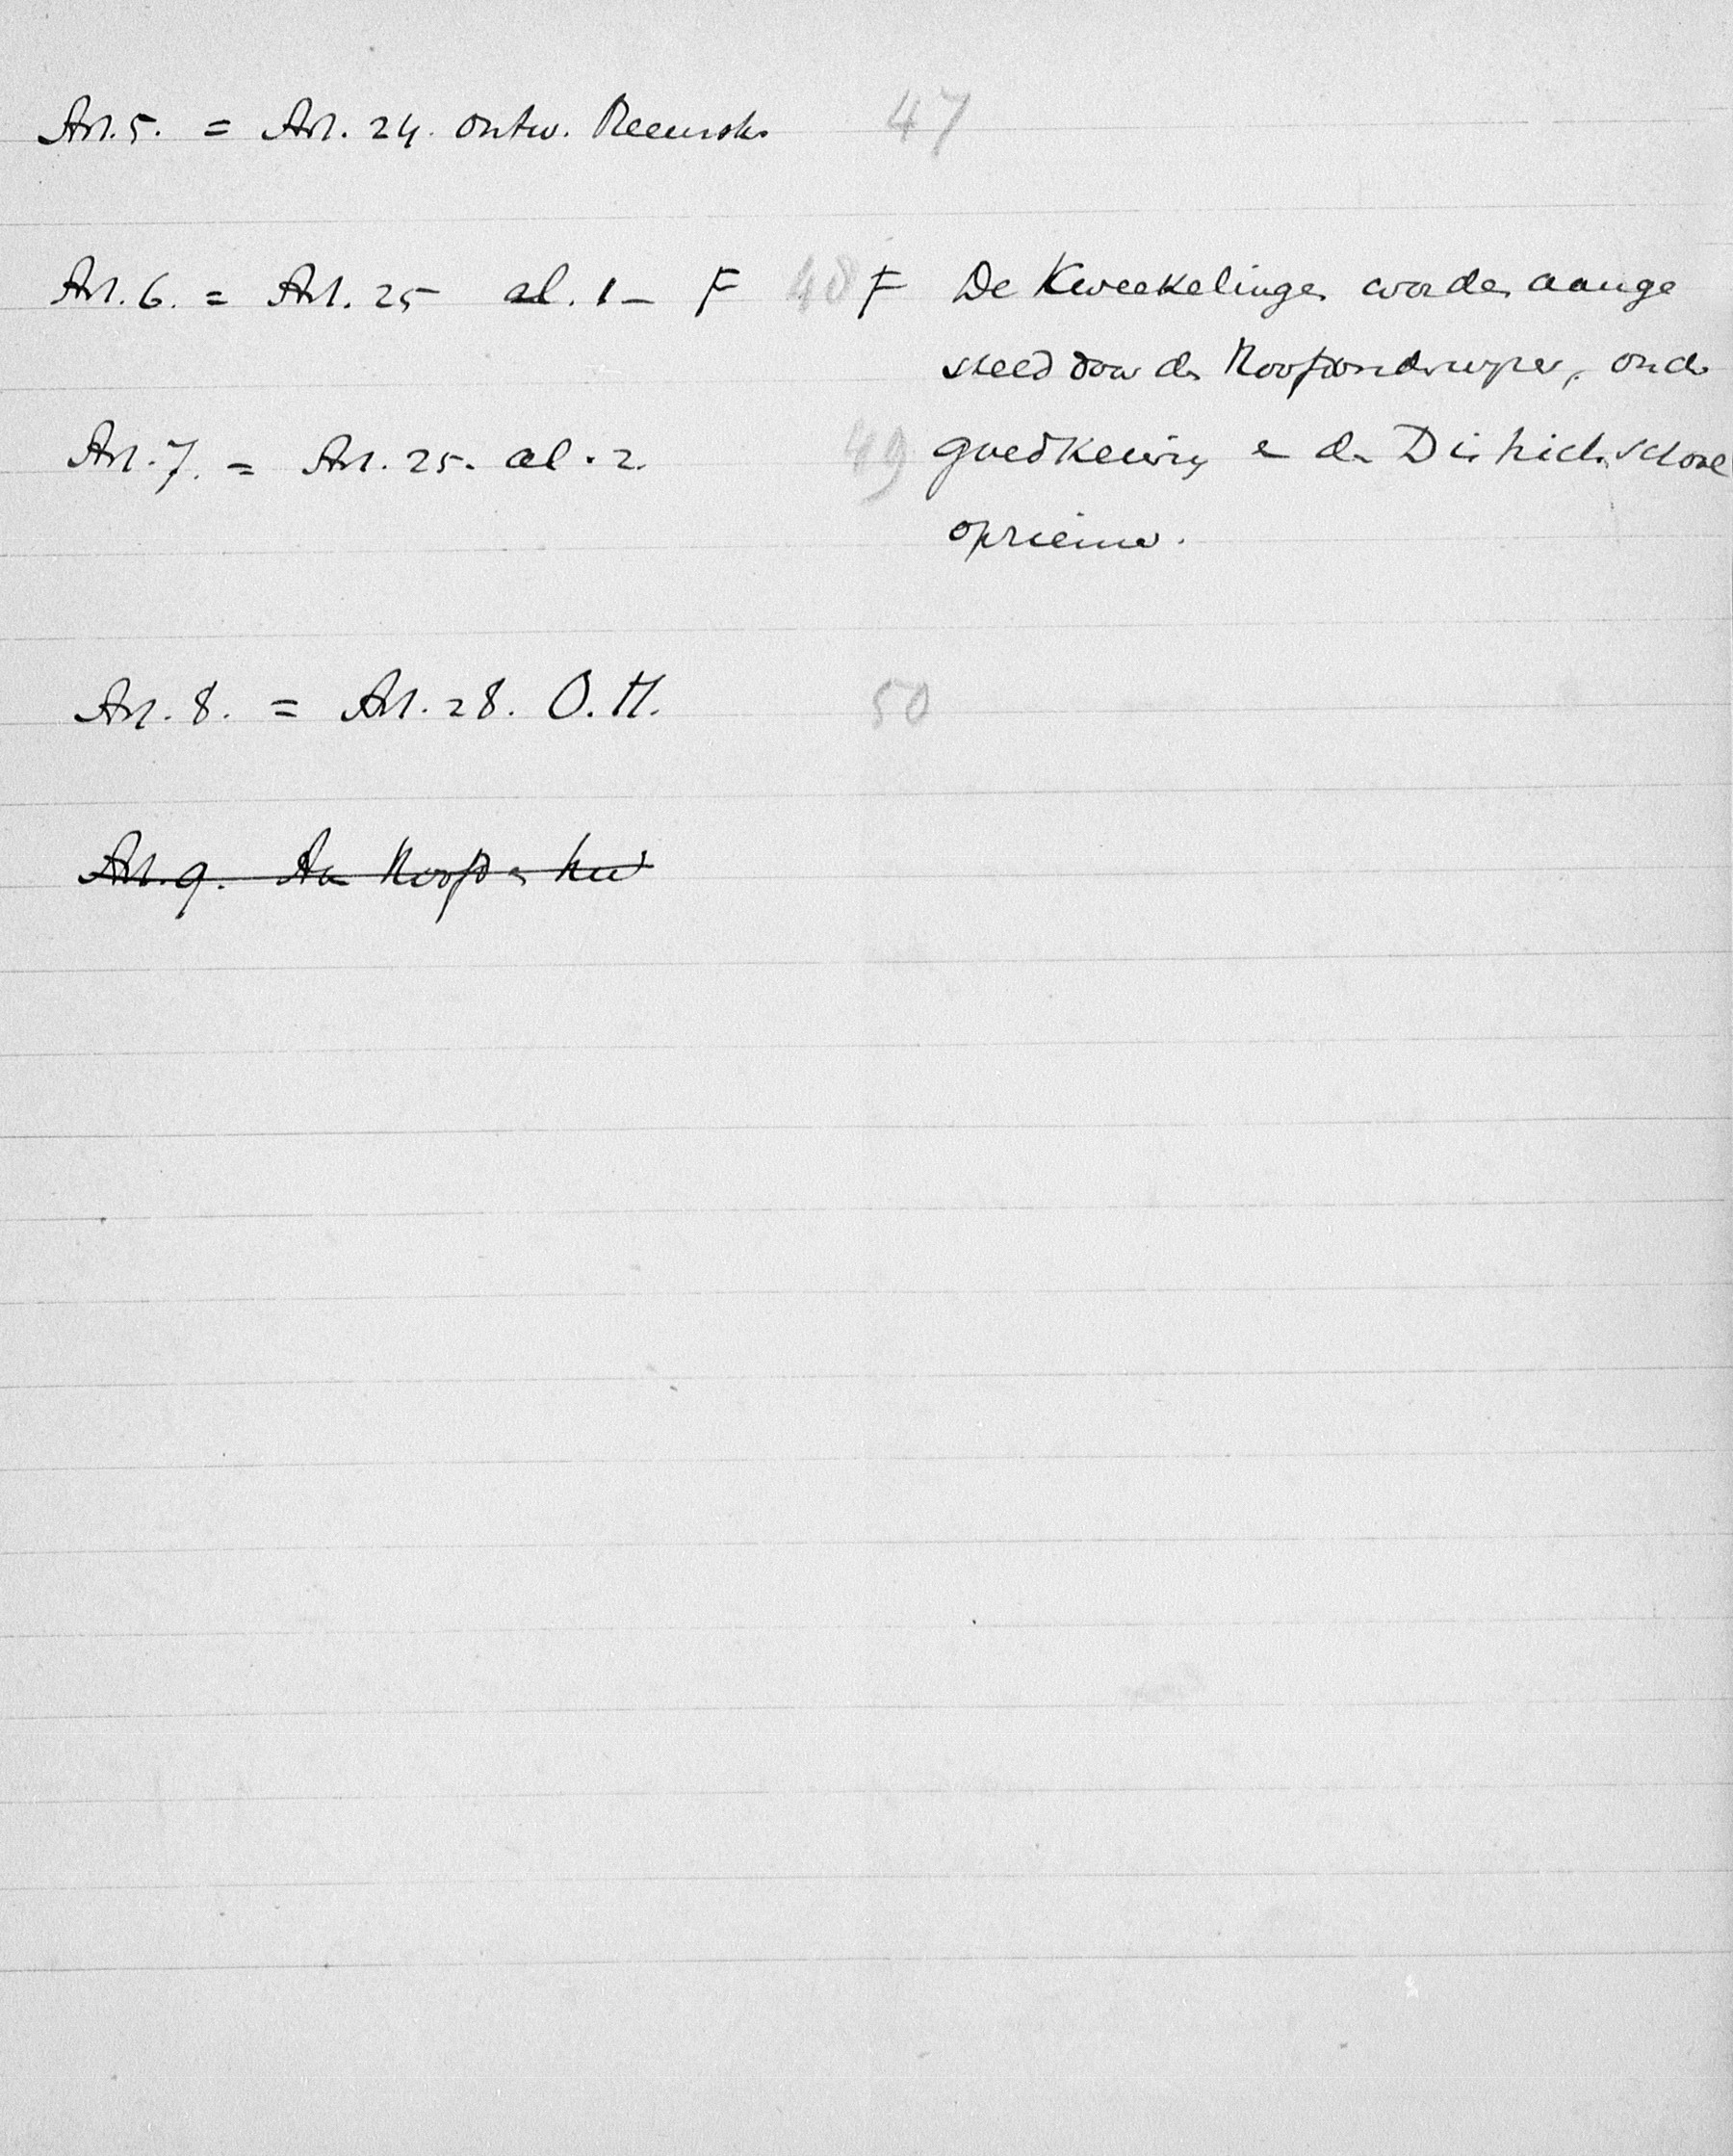 Art. 5. = Art. 24. ontw. Heemsk. 47
Art. 6. = Art. 25 al. 1 – F 48
F De Kweekelingen worden aange
steld door den Hoofdonderwijzer, onder
Art. 7. = Art. 25. al. 2. 49
goedkeuring v d. Districtsschool
opziener.
Art. 8. = Art. 28. O. H. 50
Art. 9. Hoofd